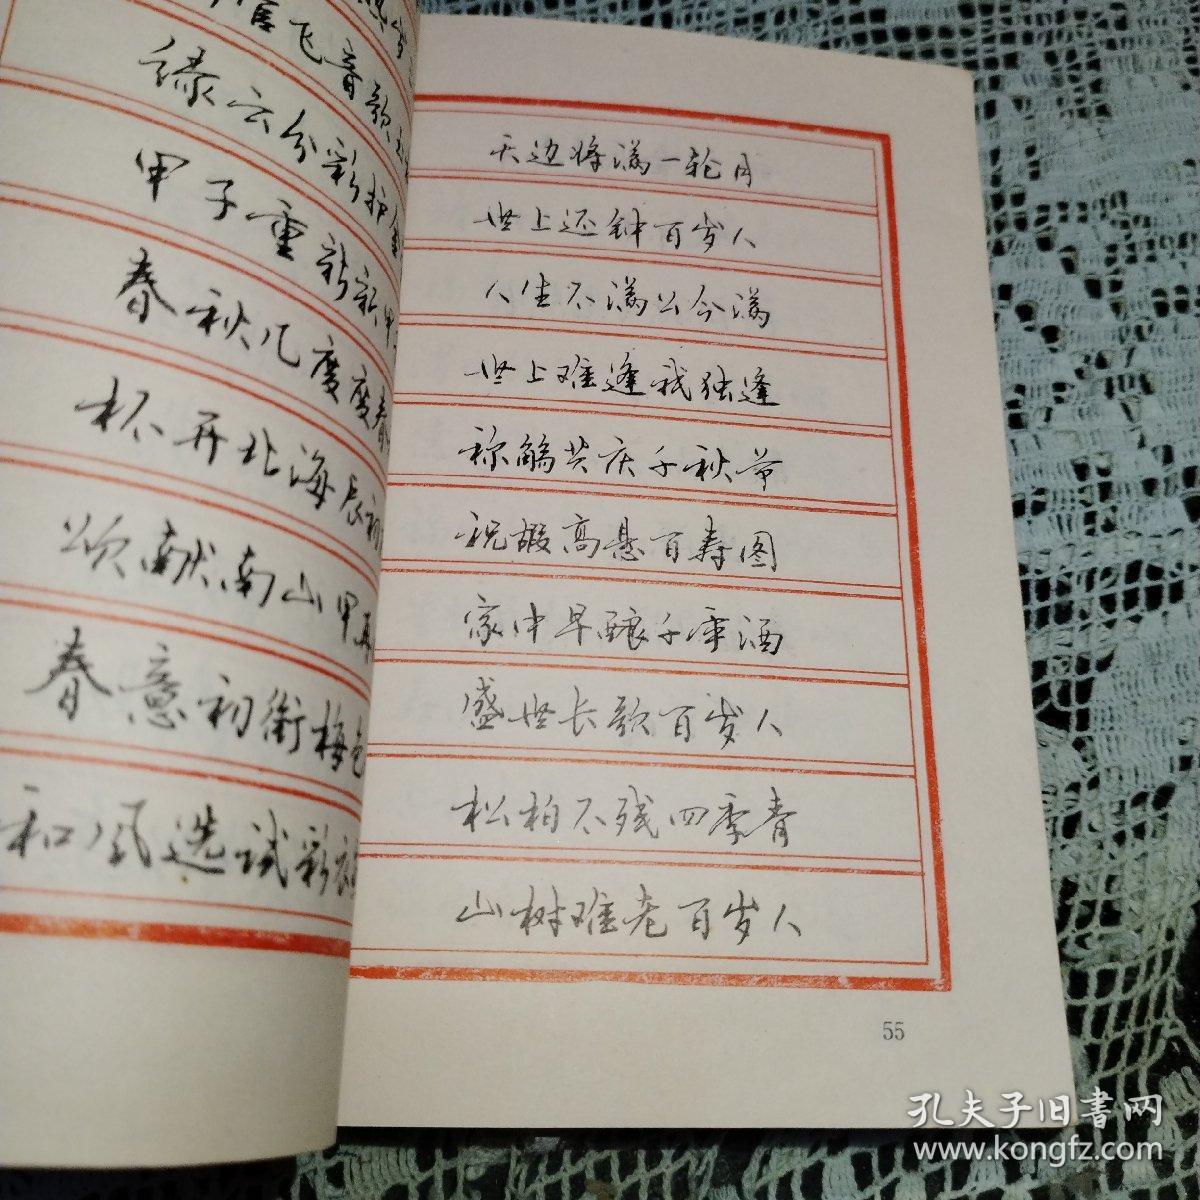 飞音歌
绿云分彩护
甲子重新新甲
春秋几度度春
杯开北海辰初
颂献南山甲再
春意初衔梅色
和风选试彩衣
天边将满一轮月
世上还钟百岁人
人生不满公今满
世上难逢我独逢
称觞共庆千秋节
祝嘏高悬百寿图
家中早酿千年酒
盛世长歌百岁人
松柏不残四季青
山树难老百岁人
55
孔夫子旧书网
www.kongfz.com